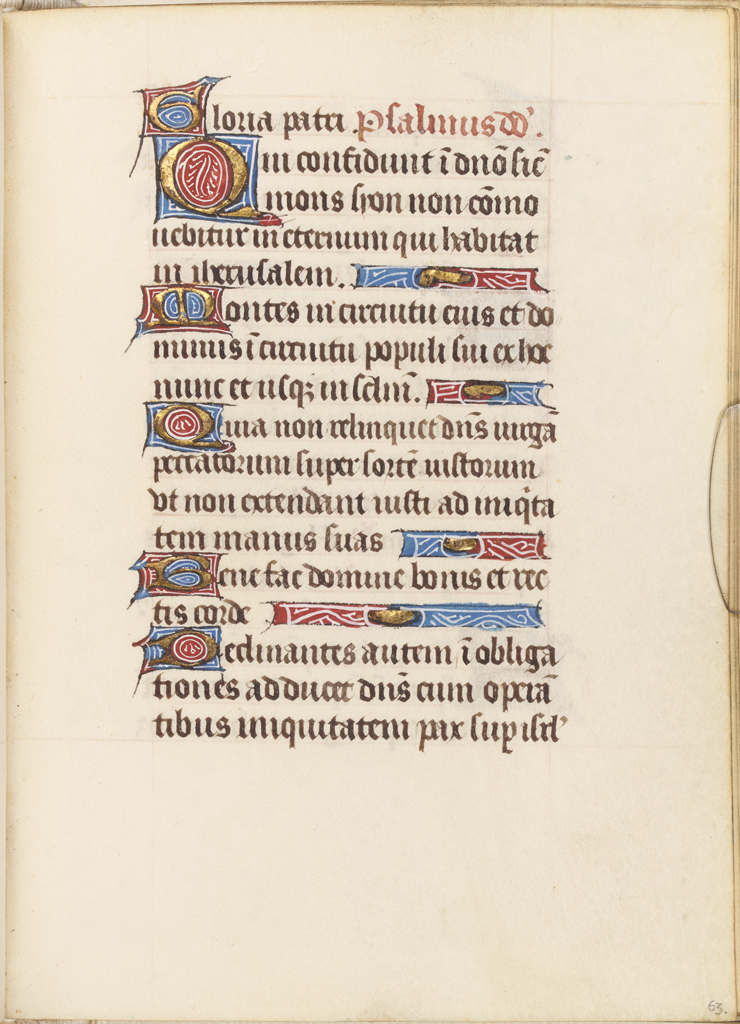 Gloria patri. Psalmus dd'.
Qui confidunt ī dnō sic̄
mons syon non cōmo
uebitur in eternum qui habitat
in iherusalem.
Montes in circuitu eius et do
minus ī circuitu populi sui ex hoc
nunc et usqꝫ in sclm̄.
Quia non relinquet dn̄s uirgā
peccatorum super sortē iustorum
vt non extendant iusti ad iniqͥta
tem manus suas
Bene fac domine bonis et rec
tis corde
Declinantes autem ī obliga
tiones adducet dn̄s cum operā
tibus iniquitatem pax suꝑ isrl'
63.